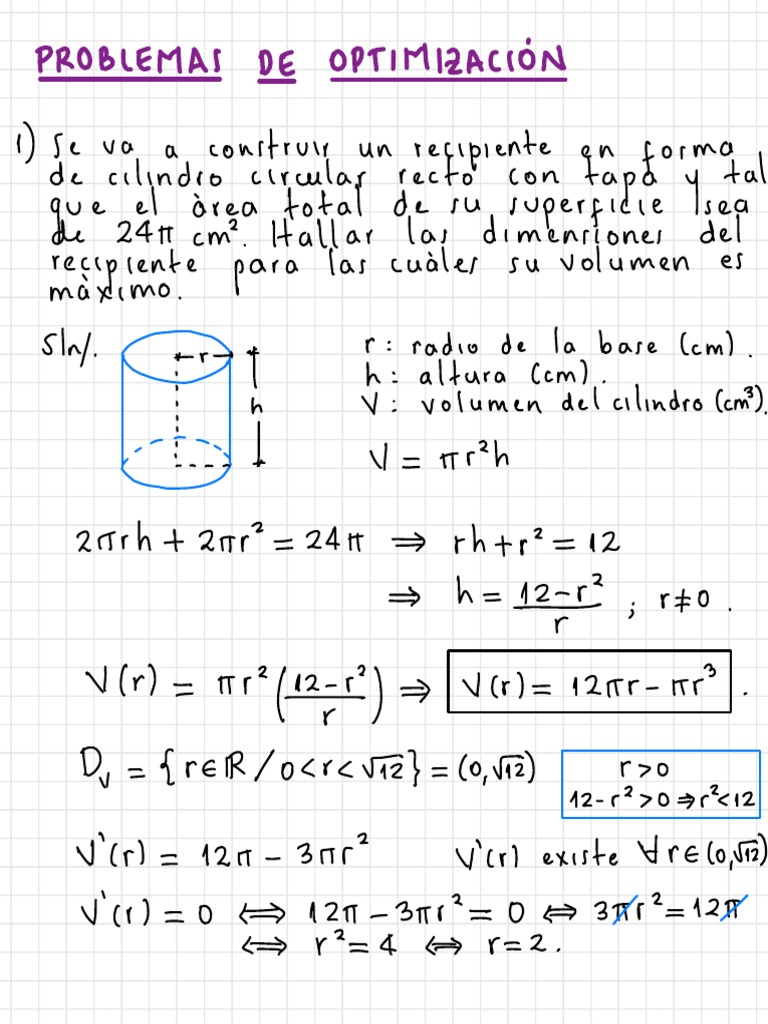 PROBLEMAS DE OPTIMIZACIÓN
1) Se va a construir un recipiente en forma
de cilindro circular recto con tapa y tal
que el àrea total de su superficie sea
de 24π cm². Hallar las dimensiones del
recipiente para las cuàles su volumen es
màximo.
Sln/.
r
h
r: radio de la base (cm).
h: altura (cm).
V: volumen del cilindro (cm³).
V = πr²h
2πrh + 2πr² = 24π ⇒ rh+r² = 12
⇒ h = (12-r²)/r ; r≠0.
V(r) = πr²((12-r²)/r) ⇒ V(r) = 12πr - πr³.
D_V = {r∈ℝ / 0<r<√12} = (0,√12)
r>0
12-r²>0 ⇒ r²<12
V'(r) = 12π - 3πr² V'(r) existe ∀r∈(0,√12)
V'(r) = 0 ⇔ 12π - 3πr² = 0 ⇔ 3πr² = 12π
⇔ r² = 4 ⇔ r = 2.